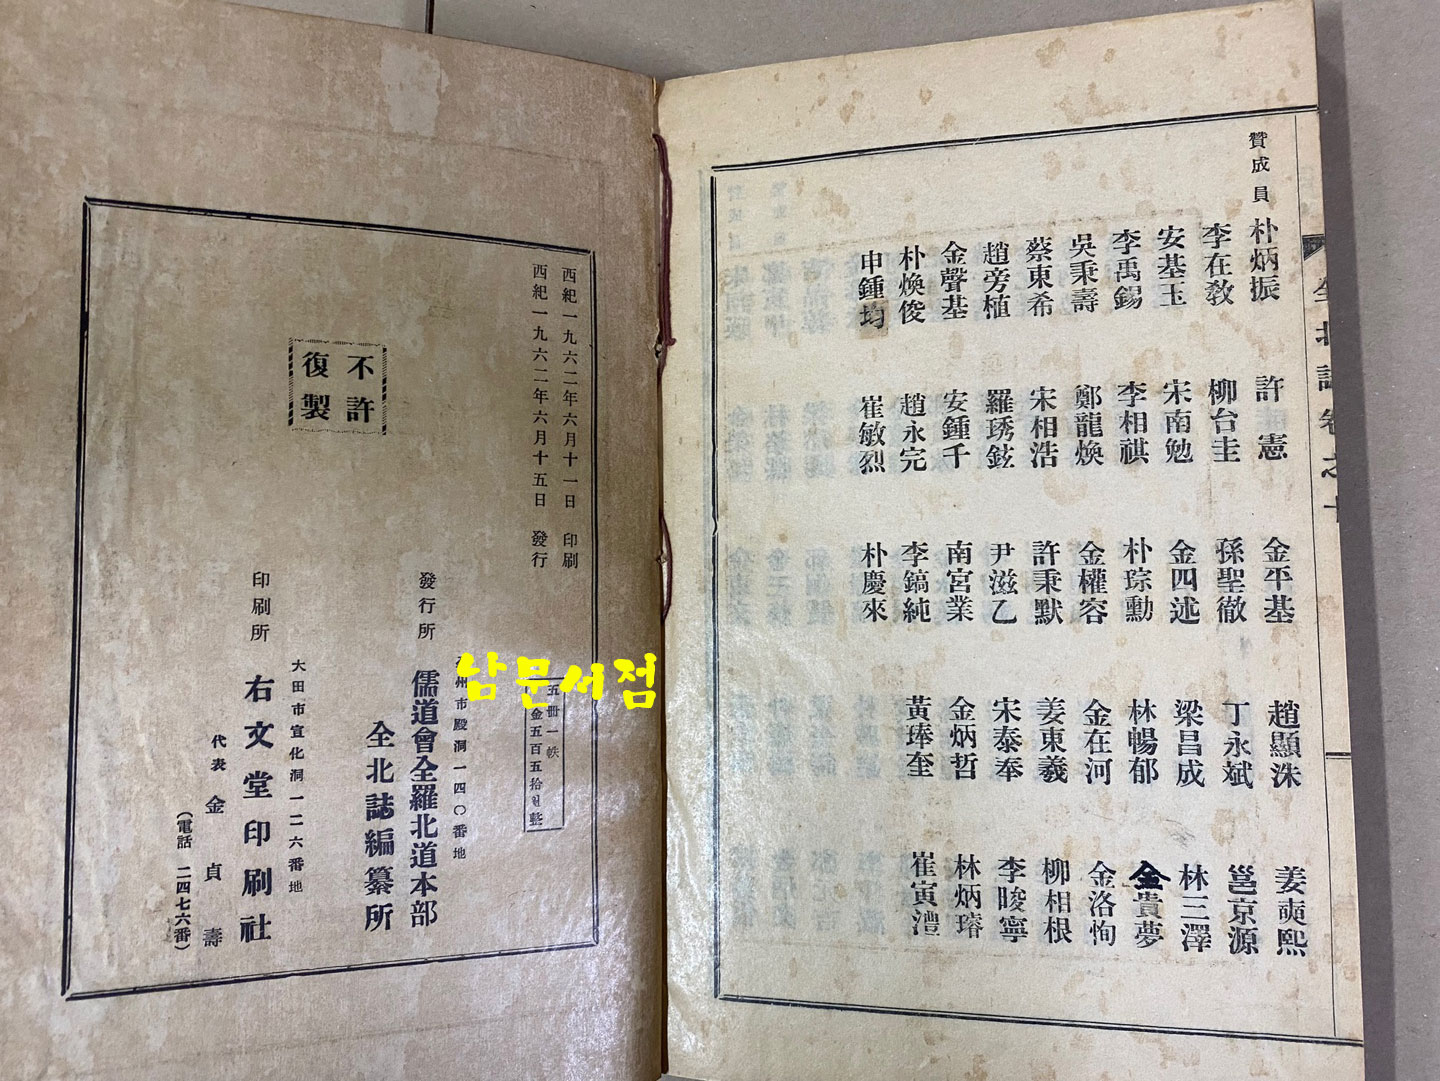 全北誌卷之十
贊成員
朴炳振 許憲 金平基 趙顯洙 姜奭熙
李在敎 柳台圭 孫聖徹 丁永斌 邕京源
安基玉 宋南勉 金四述 梁昌成 林三澤
李禹錫 李相祺 朴琮勳 林暢郁 金貴夢
吳秉壽 鄭龍煥 金權容 金在河 金洛恂
蔡東希 宋相浩 許秉默 姜東羲 柳相根
趙旁植 羅琇鉉 尹滋乙 宋泰奉 李晙寧
金聲基 安鍾千 南宮業 金炳哲 林炳璿
朴煥俊 趙永完 李鎬純 黃琫奎 崔寅澧
申鍾均 崔敏烈 朴慶來
西紀一九六二年六月十一日 印刷
西紀一九六二年六月十五日 發行
五冊一帙
金五百五拾원整
州市殿洞一四〇番地
發行所 儒道會全羅北道本部
全北誌編纂所
大田市宣化洞一二六番地
印刷所 右文堂印刷社
代表 金貞壽
(電話 二四七六番)
不許
復製
남문서점